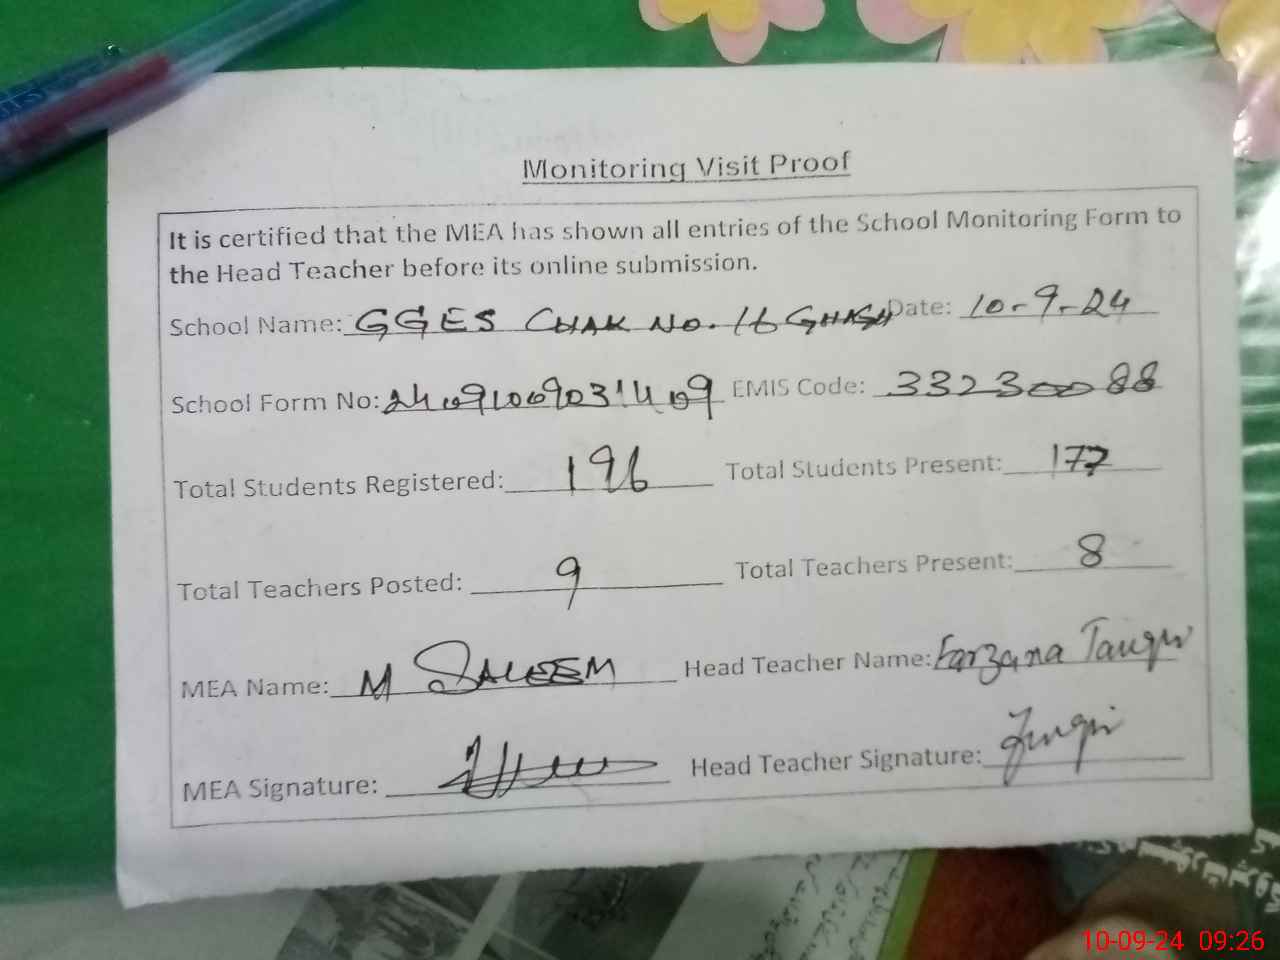 Monitoring Visit Proof
It is certified that the MEA has shown all entries of the School Monitoring Form to
the Head Teacher before its online submission.
School Name: GGES CHAK NO. 16 GHAGH Date: 10-9-24
School Form No: EMIS Code: 33230088
Total Students Registered: 196 Total Students Present: 177
Total Teachers Posted: 9 Total Teachers Present: 8
MEA Name: M SALEEM Head Teacher Name: Farzana
MEA Signature: Head Teacher Signature:
10-09-24 09:26